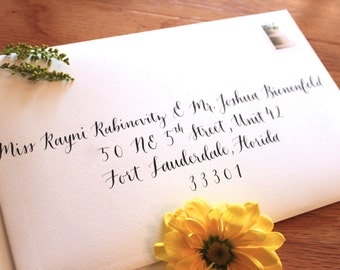 Miss Rayni Rabinovitz & Mr. Joshua Bienenfeld
50 NE 5th Street, Unit 42
Fort Lauderdale, Florida
33301